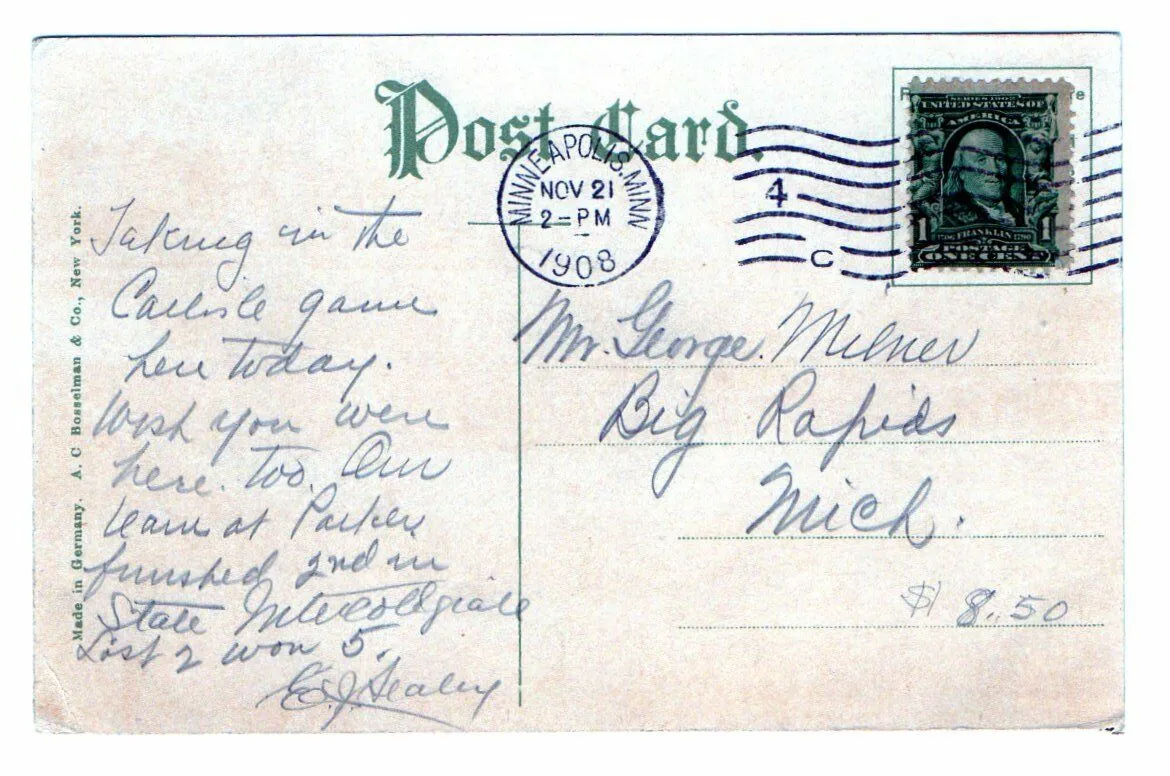 Post Card.
MINNEAPOLIS, MINN
NOV 21
2-PM
1908
4
C
SERIES 1902
UNITED STATES OF
AMERICA
1706 FRANKLIN 1790
1 1
POSTAGE
ONE CENT
Made in Germany. A. C Bosselman & Co., New York.
Taking in the
Carlisle game
here today.
Wish you were
here. too. Our
team at Parker
finished 2nd in
State Intercollegiate
Lost 2 won 5.
Mr. George. Milner
Big Rapids
Mich.
$ 8.50